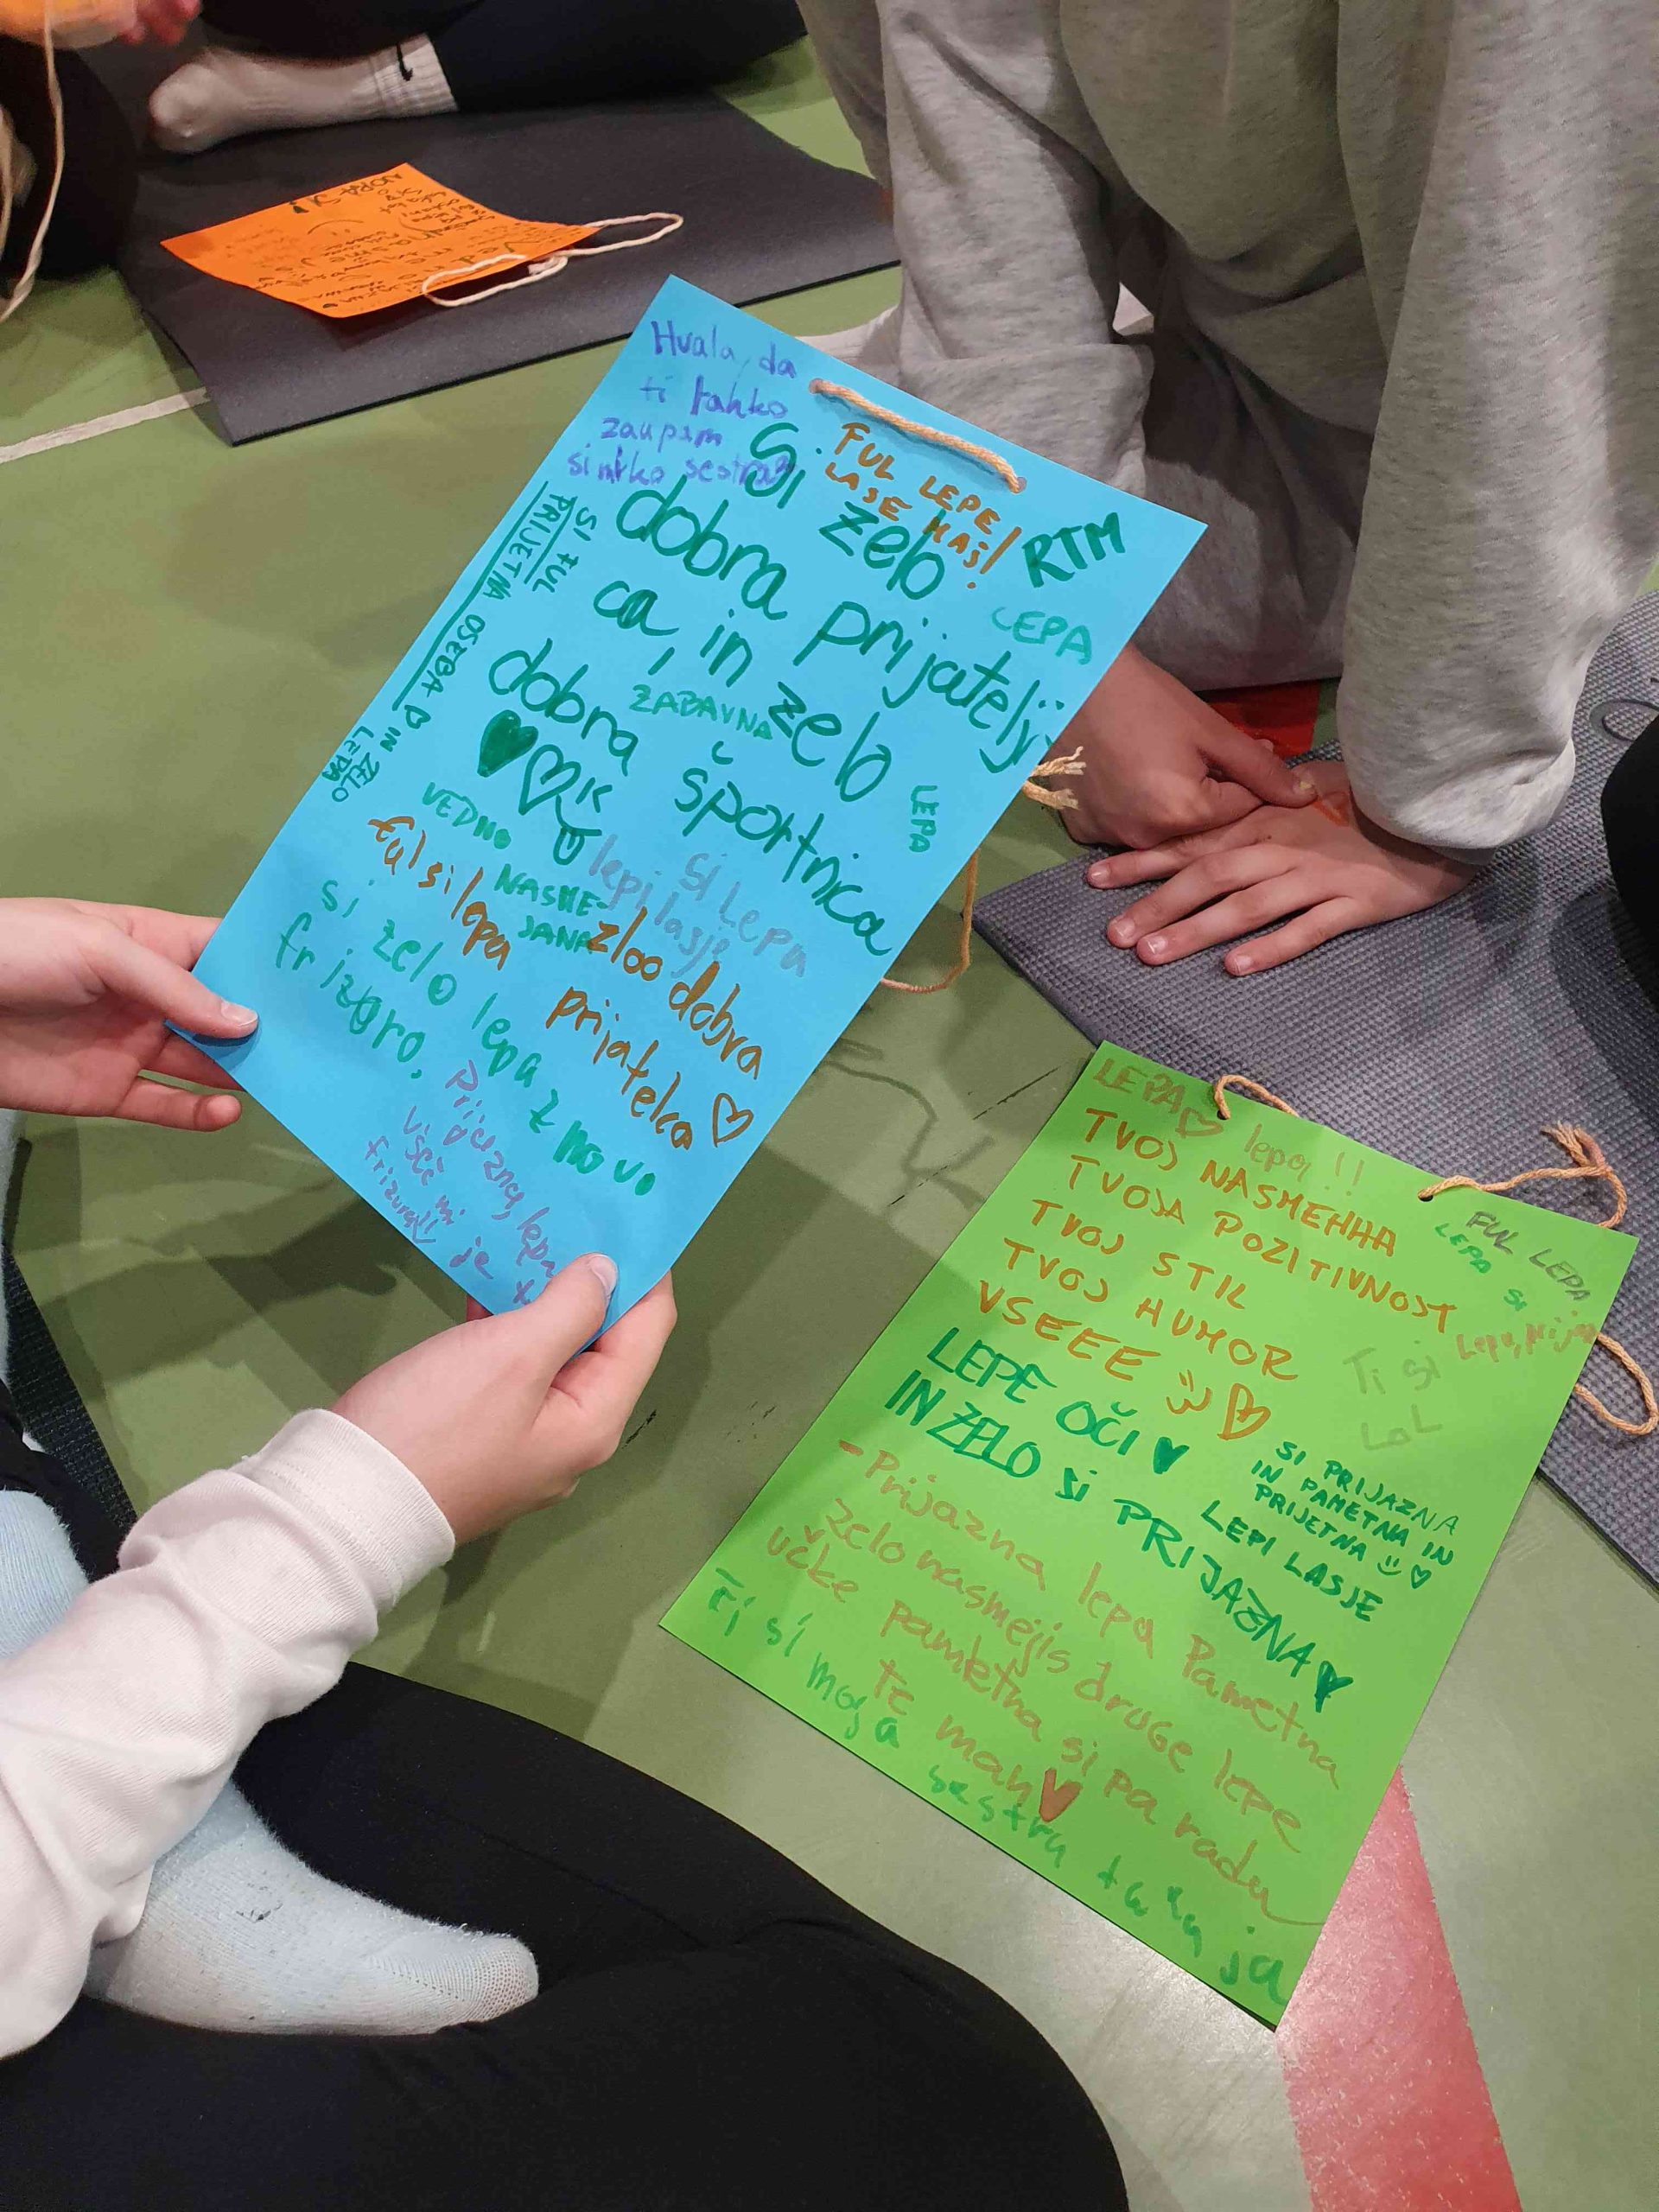 Hvala, da
ti lahko
zaupam
si mtko sestra
FUL LEPE
LASE MAŠ!
RTM
LEPA
Si zelo
dobra prijatelji
ca, in zelo
dobra športnica
ZABAVNA
LEPA
SI FUL
PRIJETNA OSEBA
IN ZELO
LEPA
VEDNO
NASME-
JANA
si lepa
lepi lasje
ful si lepa zloo dobra
prijatelca
si zelo lepa z novo
frizgro.
Prijazna, lepa
všeč mi je
LEPA
lepa !!
TVOJ NASMEHHA
TVOJA POZITIVNOST
TVOJ STIL
TVOJ HUMOR
VSEEE
FUL LEPA
LEPA si
Ti si
LOL
LEPE OČI LEPI LASJE
IN ZELO si PRIJAZNA
SI PRIJAZNA
IN PAMETNA IN
PRIJETNA
-Prijazna lepa Pametna
zelo nasmejis druge lepe
učke pametna si pa radu
te mam
Ti si moja sestra
NORA SI!